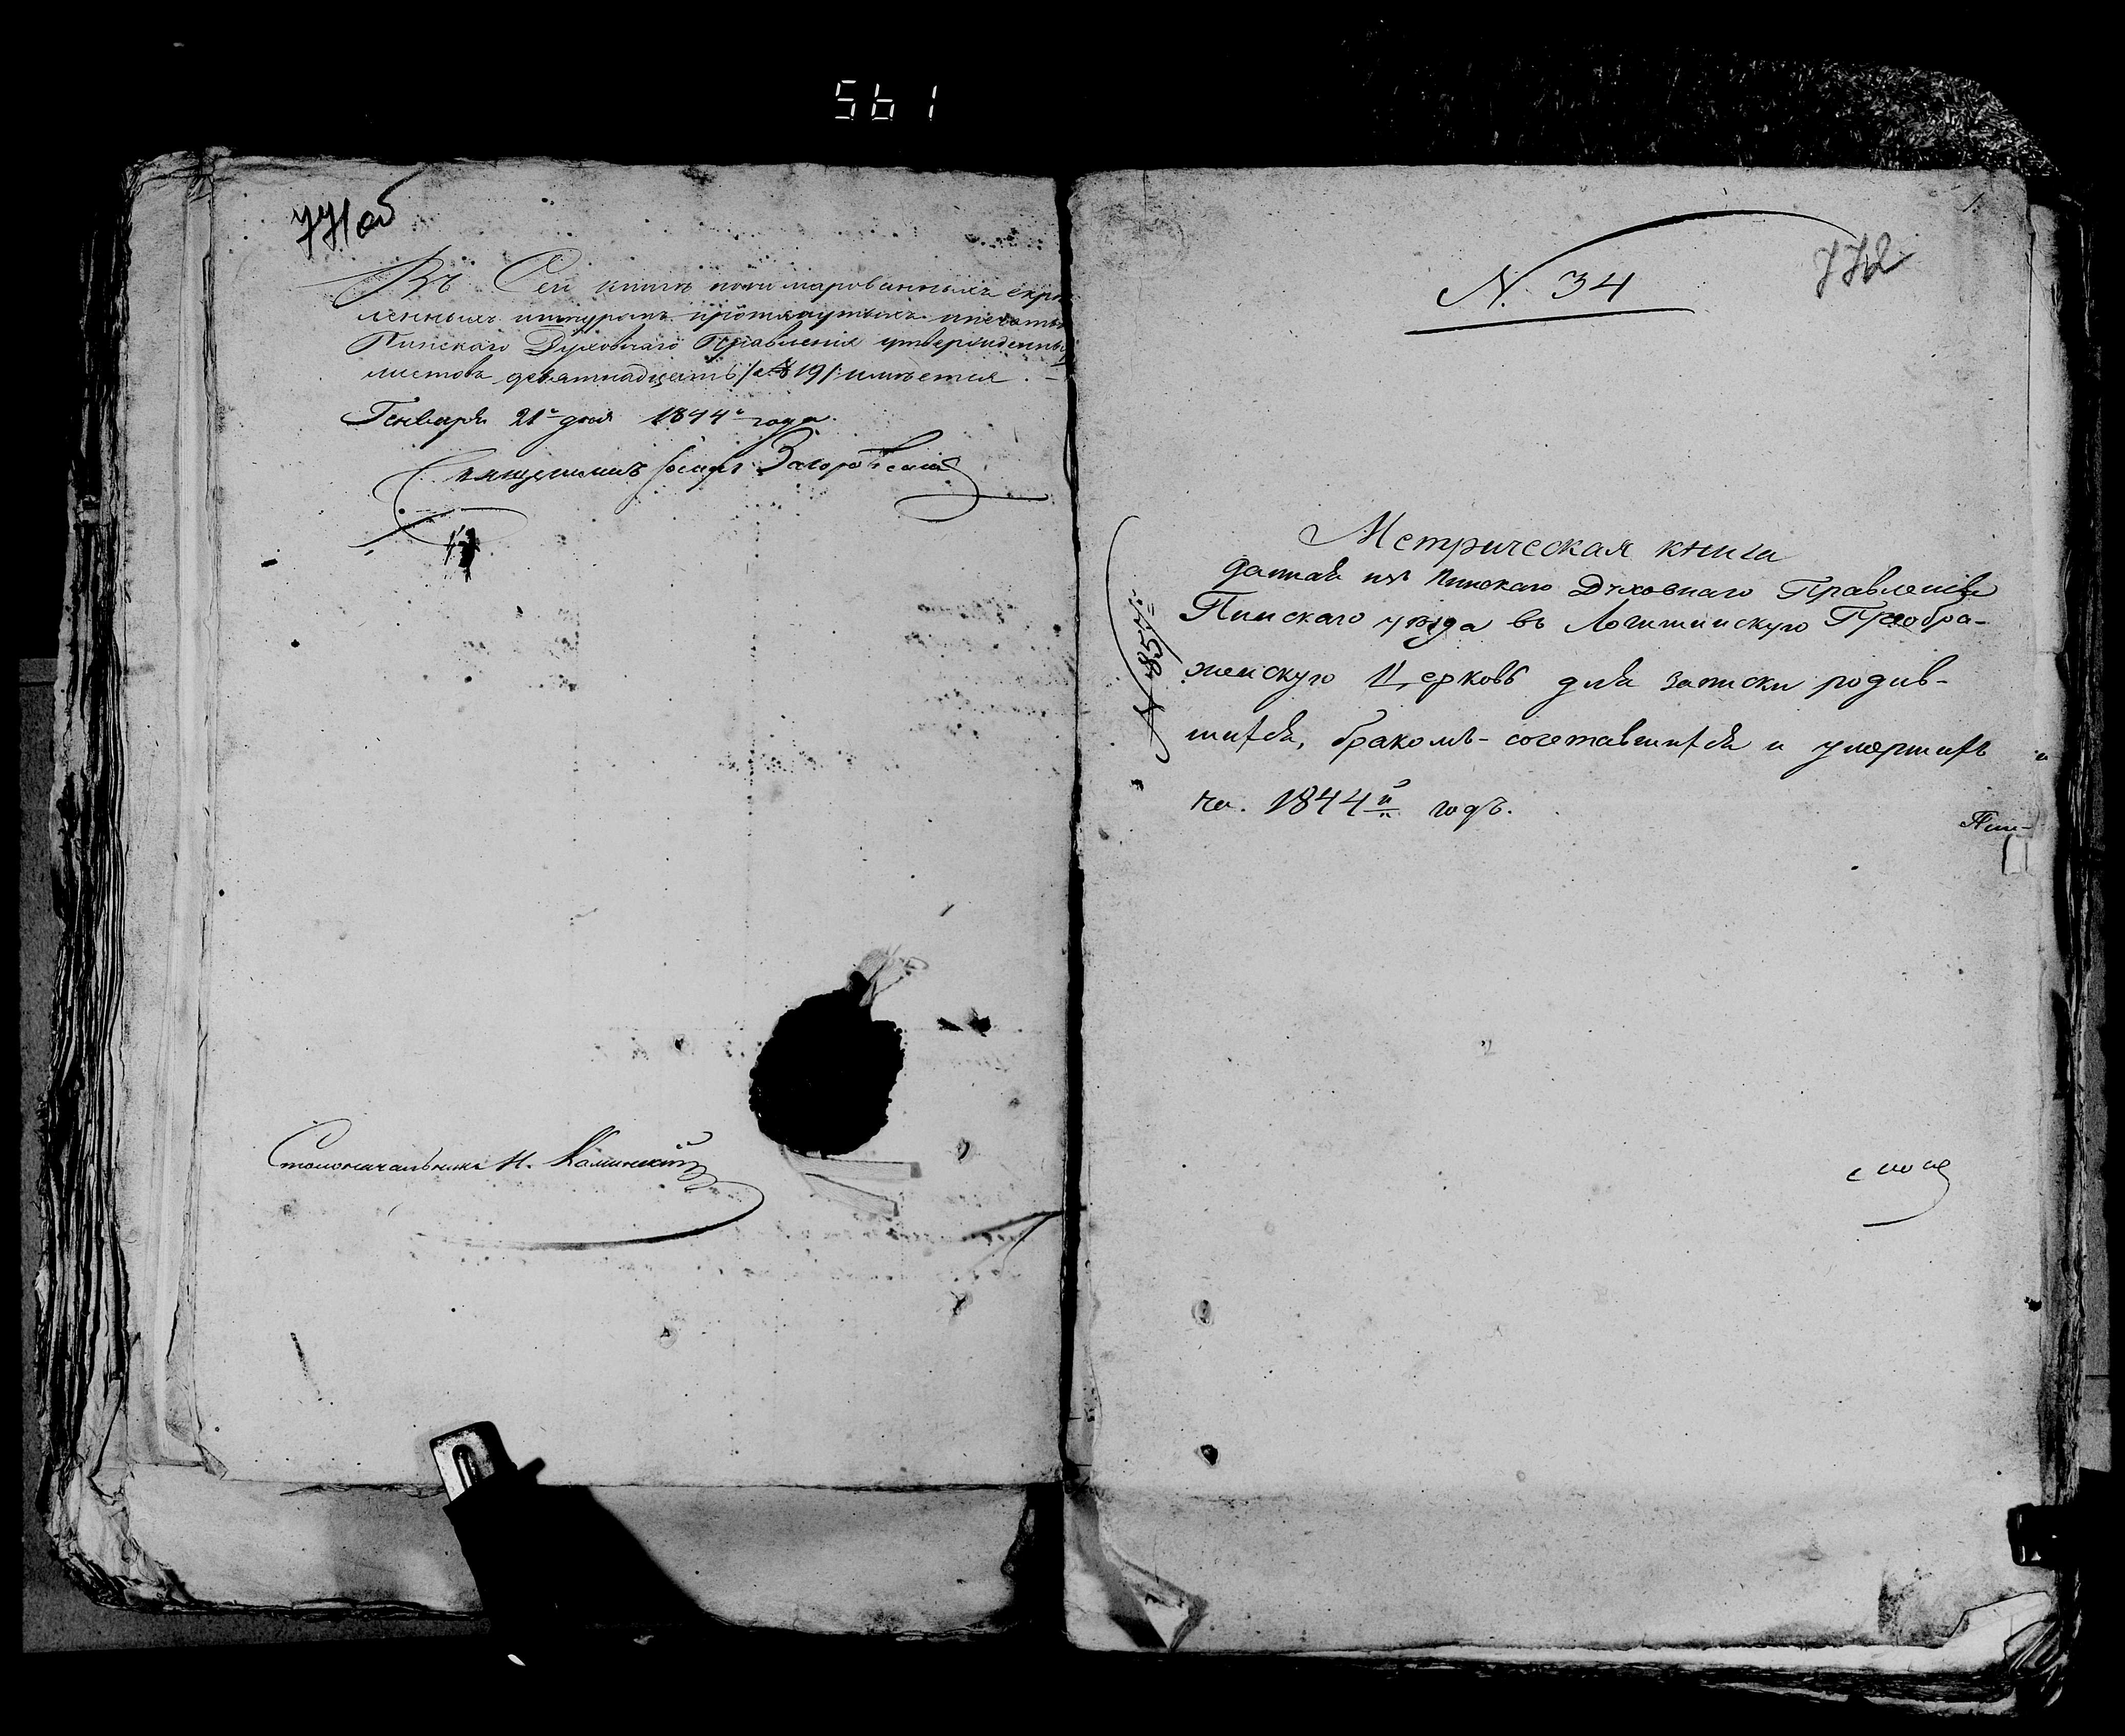 561
771 об
Въ Сей книги пономарованныхъ скрѣ
ленныхъ шнуромъ протянутыхъ и печатью
Пинскаго Духовнаго Правленія утвержденны
листовъ девятнадцать /: 19 /: имѣется. –
Генваря 21го дня 1844го года.
Священникъ Іосифъ Загоровскій
Столоначальникъ Н. Калинскій
1
772
N. 34
Метрическая книга
данная изъ Пинскаго Духовнаго Правленія
Пинскаго уѣзда въ Логишинскую Преобра-
женскую Церковь для записки родив-
шихся, бракомъ-сочетавшихся и умершихъ
на. 1844й годъ.
N 857.
Пин-